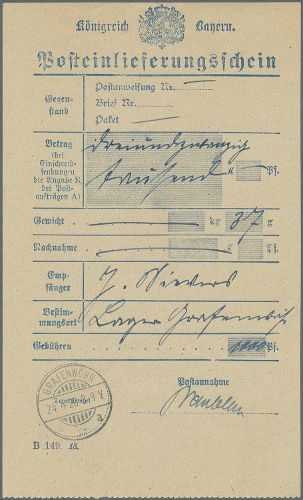 Königreich Bayern.
Posteinlieferungsschein
Gegen-
stand
Postanweisung Nr.
Brief Nr.
Paket
Betrag
(bei
Einschreib-
sendungen
die Angabe E,
bei Post-
aufträgen A)
dreiundzwanzig
tausend
ℳ Pf.
Gewicht kg 37 g
Nachnahme ℳ Pf.
Emp-
fänger
J. Sievers
Bestim-
mungsort
Lager Grafenwöhr
Gebühren Pf.
GRAFENWÖHR
Tagesstempel
a
Postannahme
B 149. 18.